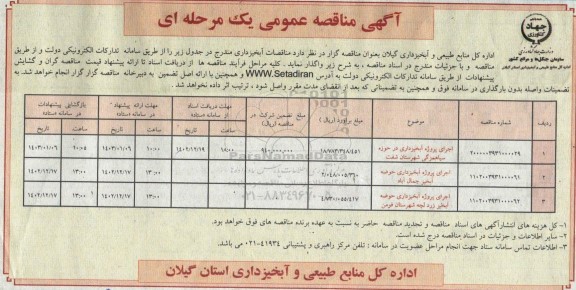 آگهی مناقصه عمومی یک مرحله ای
جهاد
سازمان جنگلها و مراتع کشور
اداره کل منابع طبیعی و آبخیزداری استان گیلان
اداره کل منابع طبیعی و آبخیزداری گیلان بعنوان مناقصه گزار در نظر دارد مناقصات آبخیزداری مندرج در جدول زیر را از طریق سامانه تدارکات الکترونیکی دولت و از طریق
مناقصه و با جزئیات مندرج در اسناد مناقصه ، به شرح زیر واگذار نماید . کلیه مراحل فرآیند مناقصه ها از دریافت اسناد تا ارائه پیشنهاد قیمت مناقصه گران و گشایش
پیشنهادات از طریق سامانه تدارکات الکترونیکی دولت به آدرس WWW.Setadiran و همچنین با ارائه اصل تضمین به دبیرخانه مناقصه گزار انجام خواهد شد. به
تضمینات واصله بدون بارگذاری در سامانه فوق و همچنین به تضمیناتی که بعد از انقضای مدت مقرر واصل شود ، ترتیب اثر داده نخواهد شد .
ردیف شماره مناقصه موضوع مبلغ برآورد (ریال) مبلغ تضمین شرکت در مناقصه (ریال) مهلت دریافت اسناد از سامانه ستاد مهلت ارائه پیشنهاد در سامانه ستاد بازگشایی پیشنهادات در سامانه ستاد
ساعت تاریخ ساعت تاریخ ساعت تاریخ
۱ ۲۰۰۰۰۰۳۹۳۱۰۰۰۰۲۹ اجرای پروژه آبخیزداری در حوزه سیاهمزگی شهرستان شفت ۱۸/۷۸۳/۳۴۸/۴۵۱ ۹۴۰/۰۰۰/۰۰۰ ۱۸:۰۰ ۱۴۰۲/۱۲/۱۹ ۱۰:۰۰ ۱۴۰۳/۰۱/۰۶ ۲۰:۰۵ ۱۴۰۳/۰۱/۰۶
۲ ۱۱۰۲۰۰۳۹۳۱۰۰۰۰۹۱ اجرای پروژه آبخیزداری حوضه آبخیز جمال آباد ۱۳:۰۰ ۱۴۰۲/۱۲/۱۷ ۱۳:۰۰ ۱۴۰۲/۱۲/۱۷
۳ ۱۱۰۲۰۰۳۹۳۱۰۰۰۰۹۲ اجرای پروژه آبخیزداری حوضه آبخیز زرد لجه شهرستان فومن ۴/۷۳۰/۰۵۵/۴۱۷ ۱۳:۰۰ ۱۴۰۲/۱۲/۱۷ ۱۳:۰۰ ۱۴۰۲/۱۲/۱۷
۱- کل هزینه های انتشارآگهی های اسناد مناقصه و تجدید مناقصه حاضر به نسبت به عهده برنده مناقصه های فوق خواهد بود.
۲- سایر اطلاعات و جزئیات در اسناد مناقصه درج شده است.
۳- اطلاعات تماس سامانه ستاد جهت انجام مراحل عضویت در سامانه : تلفن مرکز راهبری و پشتیبانی ۴۱۹۳۴-۰۲۱ می باشد.
اداره کل منابع طبیعی و آبخیزداری استان گیلان